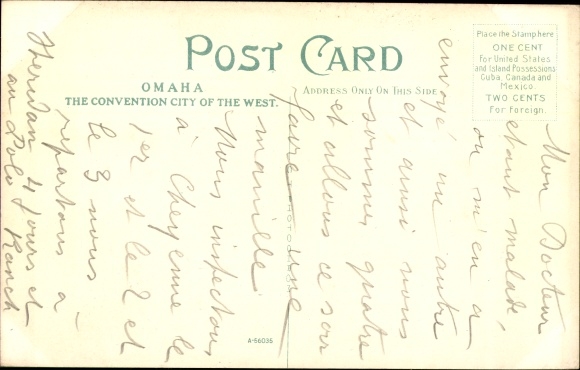 POST CARD
OMAHA
THE CONVENTION CITY OF THE WEST.
ADDRESS ONLY ON THIS SIDE
Place the Stamp here
ONE CENT
For United States
and Island Possessions
Cuba, Canada and
Mexico.
TWO CENTS
For Foreign.
Mon Docteur
étant malade,
on m'en a
envoyé un autre
et ainsi nous
sommes quatre
et allons ce soir
faire une
manille
Nous inspectons
à Cheyenne le
1er et le 2 et
le 3 nous
repartons à
Sheridan 4 jours et
au Polo Ranch
A-56036